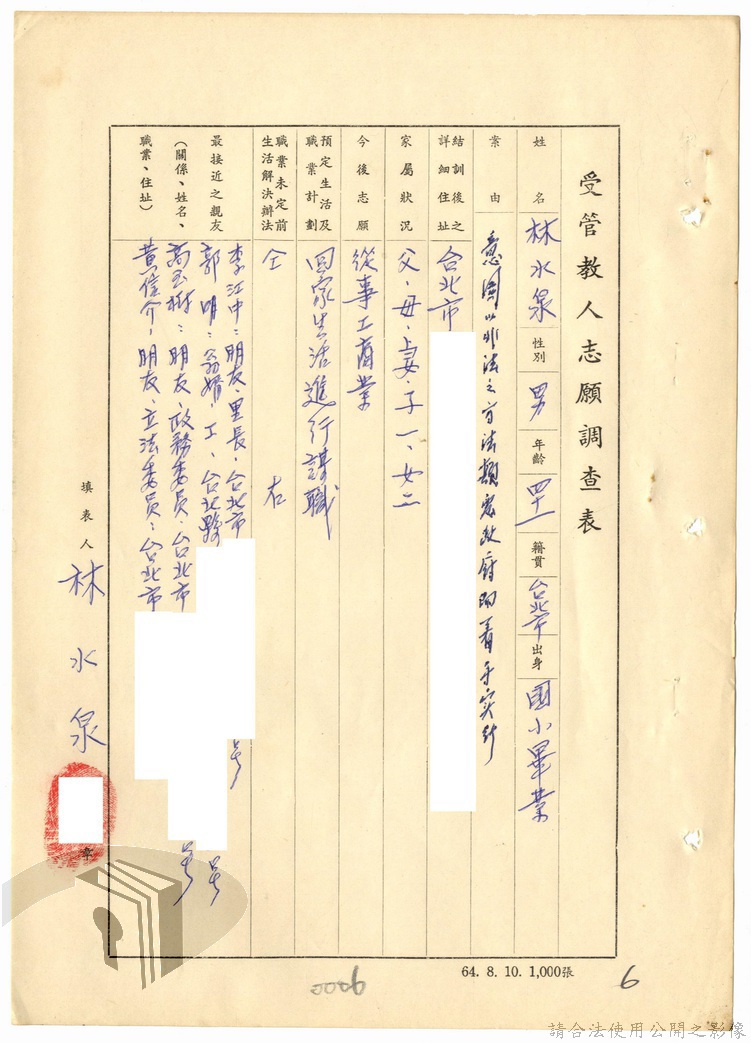 受管教人志願調查表
姓名 林水泉 性別 男 年齡 四十一 籍貫 台北市 出身 國小畢業
案由 意圖以非法之方法顛覆政府而着手實行
結訓後之詳細住址 台北市
家屬狀況 父、母、妻、子一、女二
今後志願 從事工商業
預定生活及職業計劃 回家生活進行謀職
職業未定前生活解決辦法 仝右
最接近之親友
(關係、姓名、
職業、住址)
李江中:朋友、里長、台北市 号
郭明:翁婿、工、台北縣 号
高玉樹:朋友、政務委員、台北市 号
黃信介:朋友、立法委員:台北市
填表人 林水泉
章
64. 8. 10. 1,000張
0006
6
請合法使用公開之影像